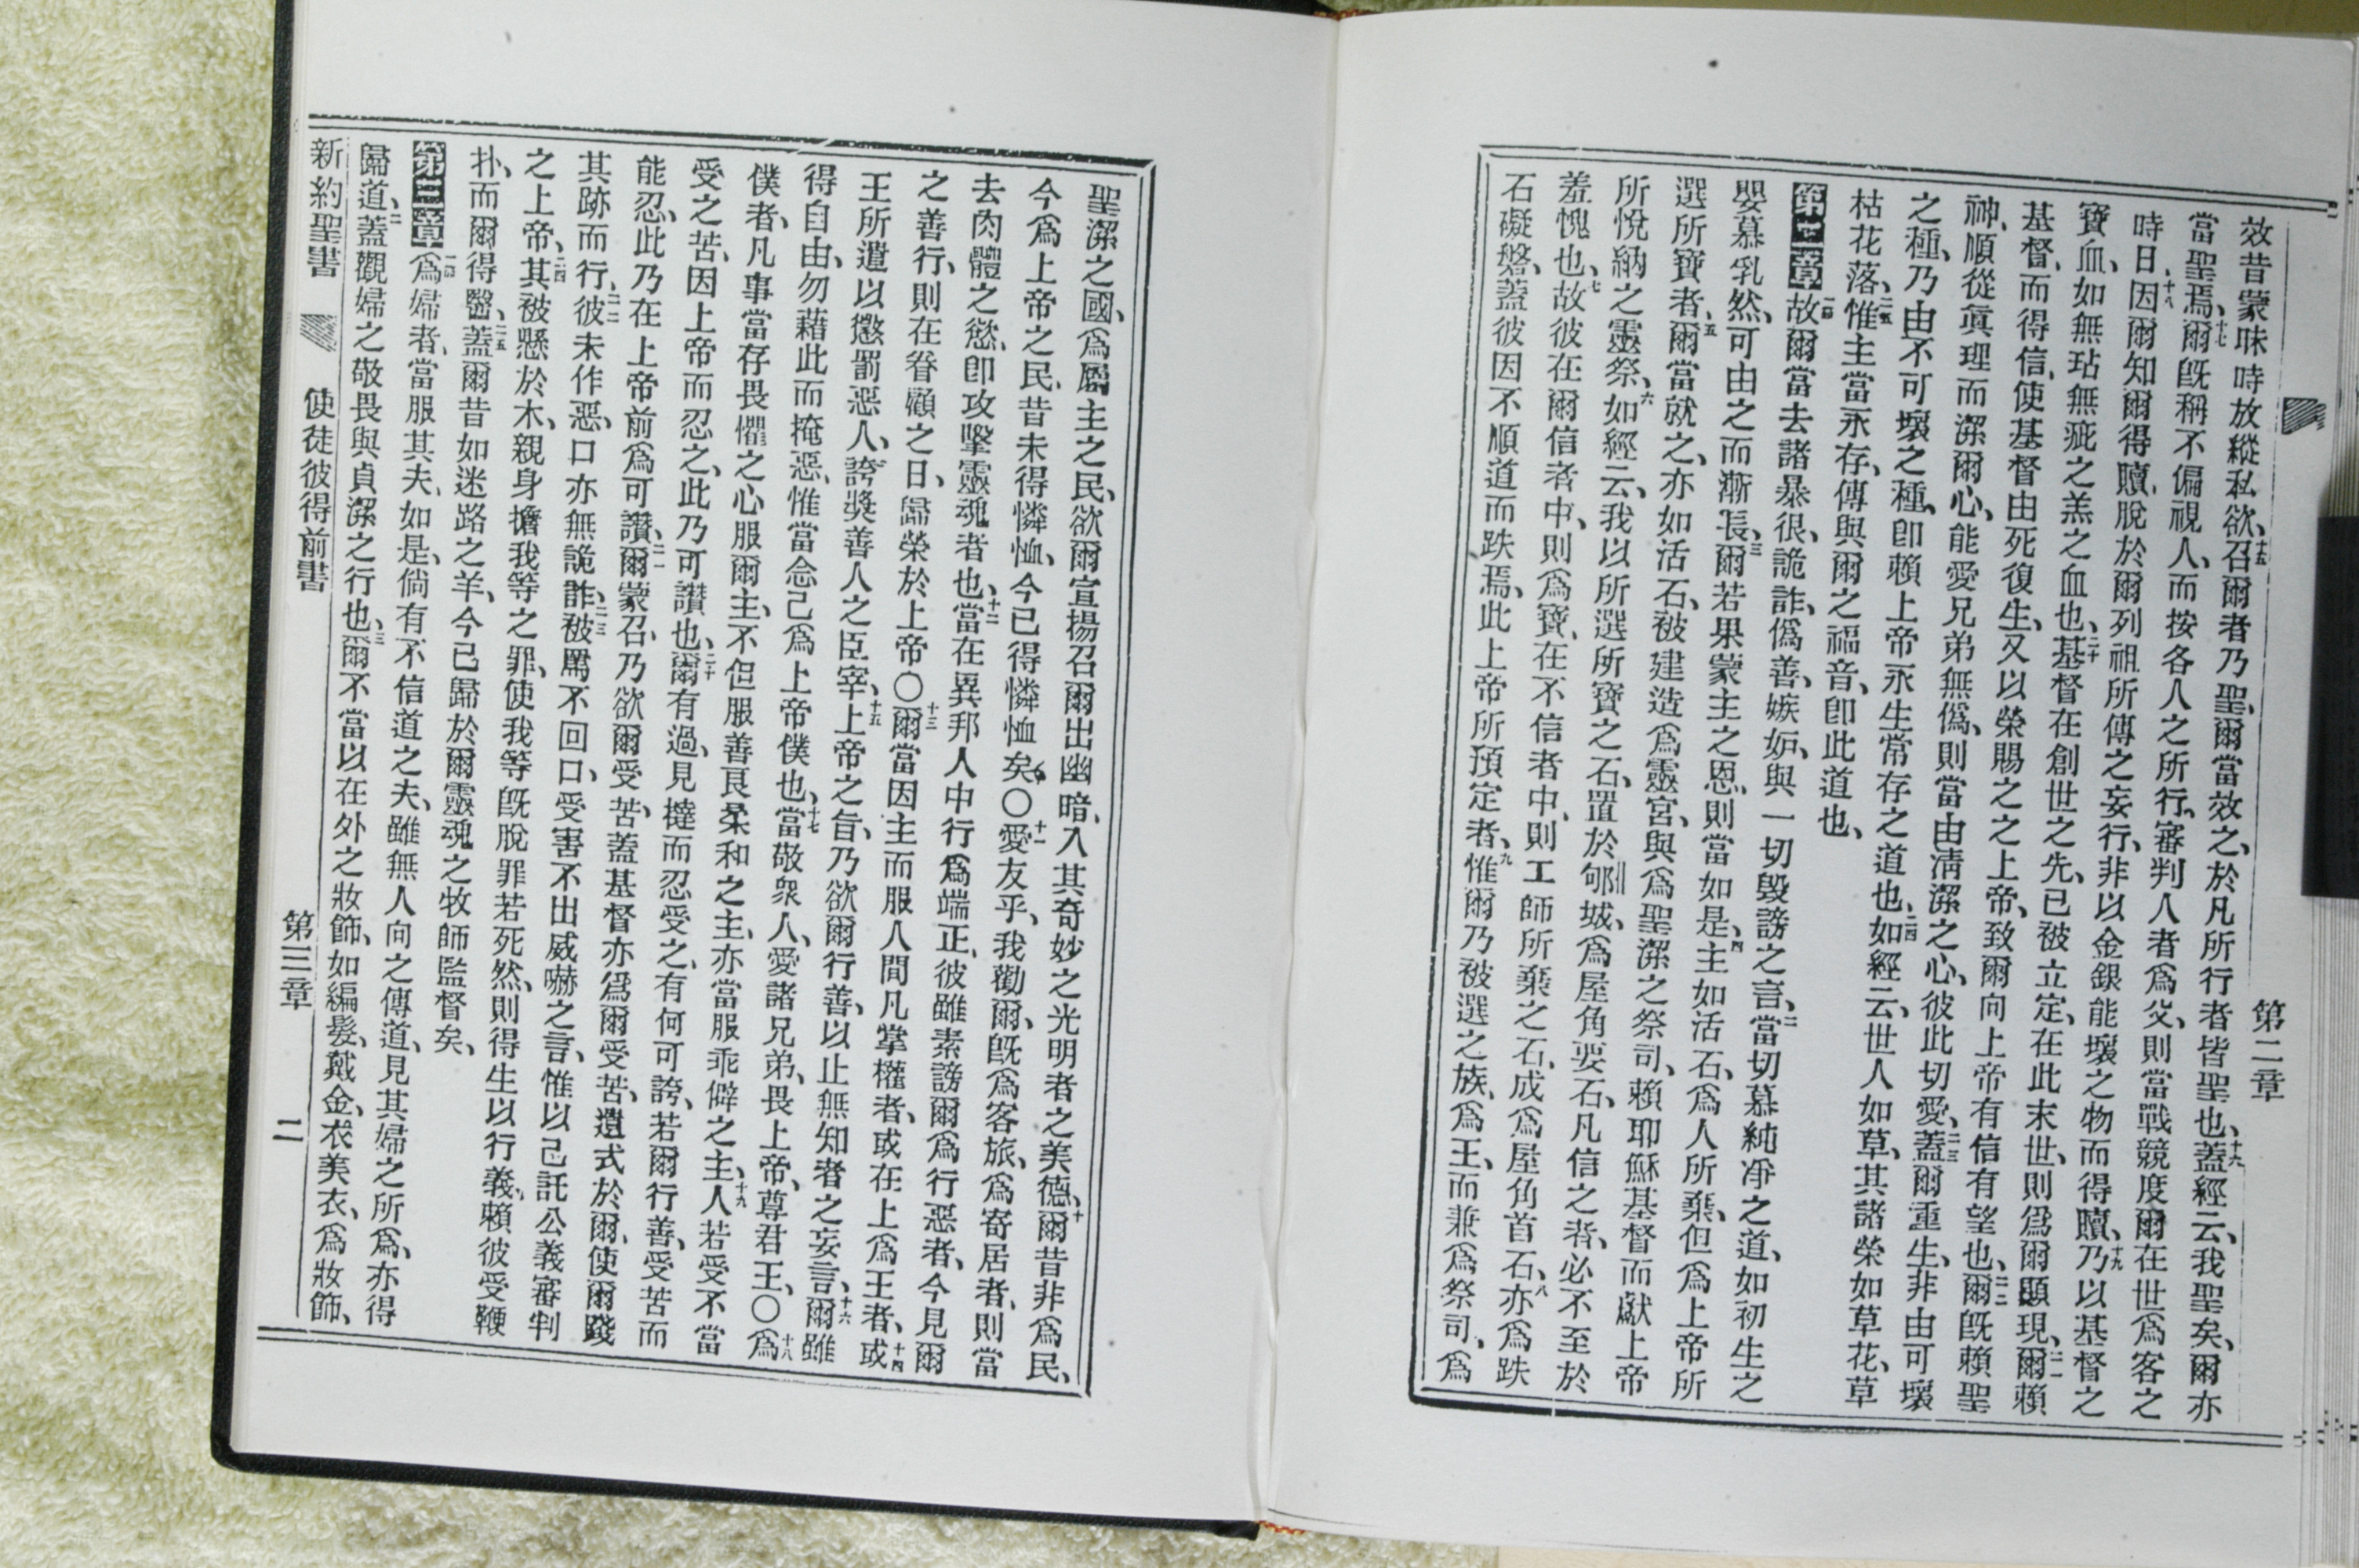 第二章
效昔蒙昧時放縱私欲、十五召爾者乃聖、爾當效之、於凡所行者皆聖也、十六蓋經云、我聖矣、爾亦
當聖焉、十七爾旣稱不偏視人、而按各人之所行、審判人者爲父、則當戰競度爾在世爲客之
時日、十八因爾知爾得贖、脫於爾列祖所傳之妄行、非以金銀能壞之物而得贖、十九乃以基督之
寶血、如無玷無疵之羔之血也、二十基督在創世之先、已被立定、在此末世、則爲爾顯現、二一爾賴
基督、而得信、使基督由死復生、又以榮賜之之上帝、致爾向上帝有信有望也、二二爾旣賴聖
神、順從眞理而潔爾心、能愛兄弟無僞、則當由淸潔之心、彼此切愛、二三蓋爾重生、非由可壞
之種、乃由不可壞之種、卽賴上帝永生常存之道也、二四如經云、世人如草、其諸榮如草花、草
枯花落、二五惟主當永存、傳與爾之福音、卽此道也、
第二章一節故爾當去諸暴很、詭詐、僞善、嫉妬、與一切毀謗之言、二當切慕純淨之道、如初生之
嬰慕乳然、可由之而漸長、三爾若果蒙主之恩、則當如是、四主如活石、爲人所棄、但爲上帝所
選所寶者、五爾當就之、亦如活石、被建造爲靈宮、與爲聖潔之祭司、賴耶穌基督而獻上帝
所悅納之靈祭、六如經云、我以所選所寶之石、置於郇城、爲屋角要石、凡信之者、必不至於
羞愧也、七故彼在爾信者中、則爲寶、在不信者中、則工師所棄之石、成爲屋角首石、八亦爲跌
石礙磐、蓋彼因不順道而跌焉、此上帝所預定者、九惟爾乃被選之族、爲王、而兼爲祭司、爲
聖潔之國、爲屬主之民、欲爾宣揚召爾出幽暗、入其奇妙之光明者之美德、十爾昔非爲民、
今爲上帝之民、昔未得憐恤、今已得憐恤矣、〇十一愛友乎、我勸爾、旣爲客旅、爲寄居者、則當
去肉體之慾、卽攻擊靈魂者也、十二當在異邦人中行爲端正、彼雖素謗爾爲行惡者、今見爾
之善行、則在眷顧之日、歸榮於上帝、〇十三爾當因主而服人間凡掌權者、或在上爲王者、十四或
王所遣以懲罰惡人、誇奬善人之臣宰、十五上帝之旨、乃欲爾行善、以止無知者之妄言、十六爾雖
得自由、勿藉此而掩惡、惟當念己爲上帝僕也、十七當敬衆人、愛諸兄弟、畏上帝、尊君王、〇十八爲
僕者、凡事當存畏懼之心服爾主、不但服善良柔和之主、亦當服乖僻之主、十九人若受不當
受之苦、因上帝而忍之、此乃可讚也、二十爾有過、見撻而忍受之、有何可誇、若爾行善、受苦而
能忍、此乃在上帝前爲可讚、二一爾蒙召、乃欲爾受苦、蓋基督亦爲爾受苦、遺式於爾、使爾踐
其跡而行、二二彼未作惡、口亦無詭詐、二三被罵不回口、受害不出威嚇之言、惟以己託公義審判
之上帝、二四其被懸於木、親身擔我等之罪、使我等旣脫罪若死然、則得生以行義、賴彼受鞭
扑、而爾得醫、二五蓋爾昔如迷路之羊、今已歸於爾靈魂之牧師監督矣、
第三章一節爲婦者、當服其夫、如是、倘有不信道之夫、雖無人向之傳道、見其婦之所爲、亦得
歸道、二蓋觀婦之敬畏與貞潔之行也、三爾不當以在外之妝飾、如編髮、戴金、衣美衣、爲妝飾、
新約聖書 使徒彼得前書 第三章 二